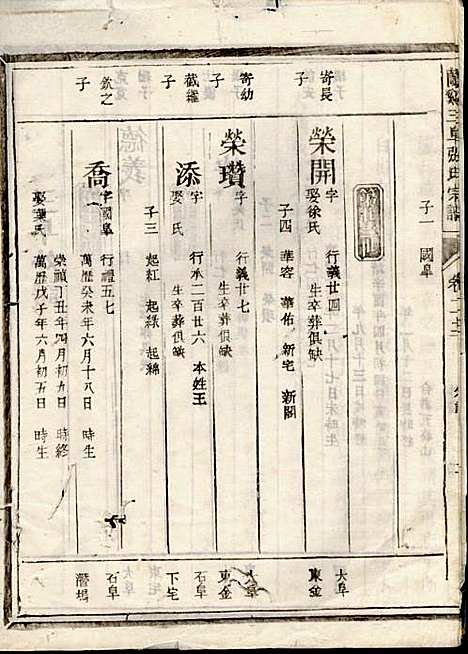 子一　國阜
寄長子
榮開
字　行義廿四
娶徐氏　生卒葬俱缺
子四　華容　華佑　新宅　新閣
大阜
東金
寄幼子
榮瓚
字　行義廿七
生卒葬俱缺
大阜
東金
截繼子
添
字　行承二百廿六　本姓王
娶　氏　生卒葬俱缺
子三　起紅　起綠　起綿
石阜
下宅
欽之子
喬
字國阜　行禮五七
萬曆癸未年六月十八日　時生
崇禎丁丑年四月初九日　時終
娶葉氏　萬曆戊子年六月初五日　時生
石阜
潛塢